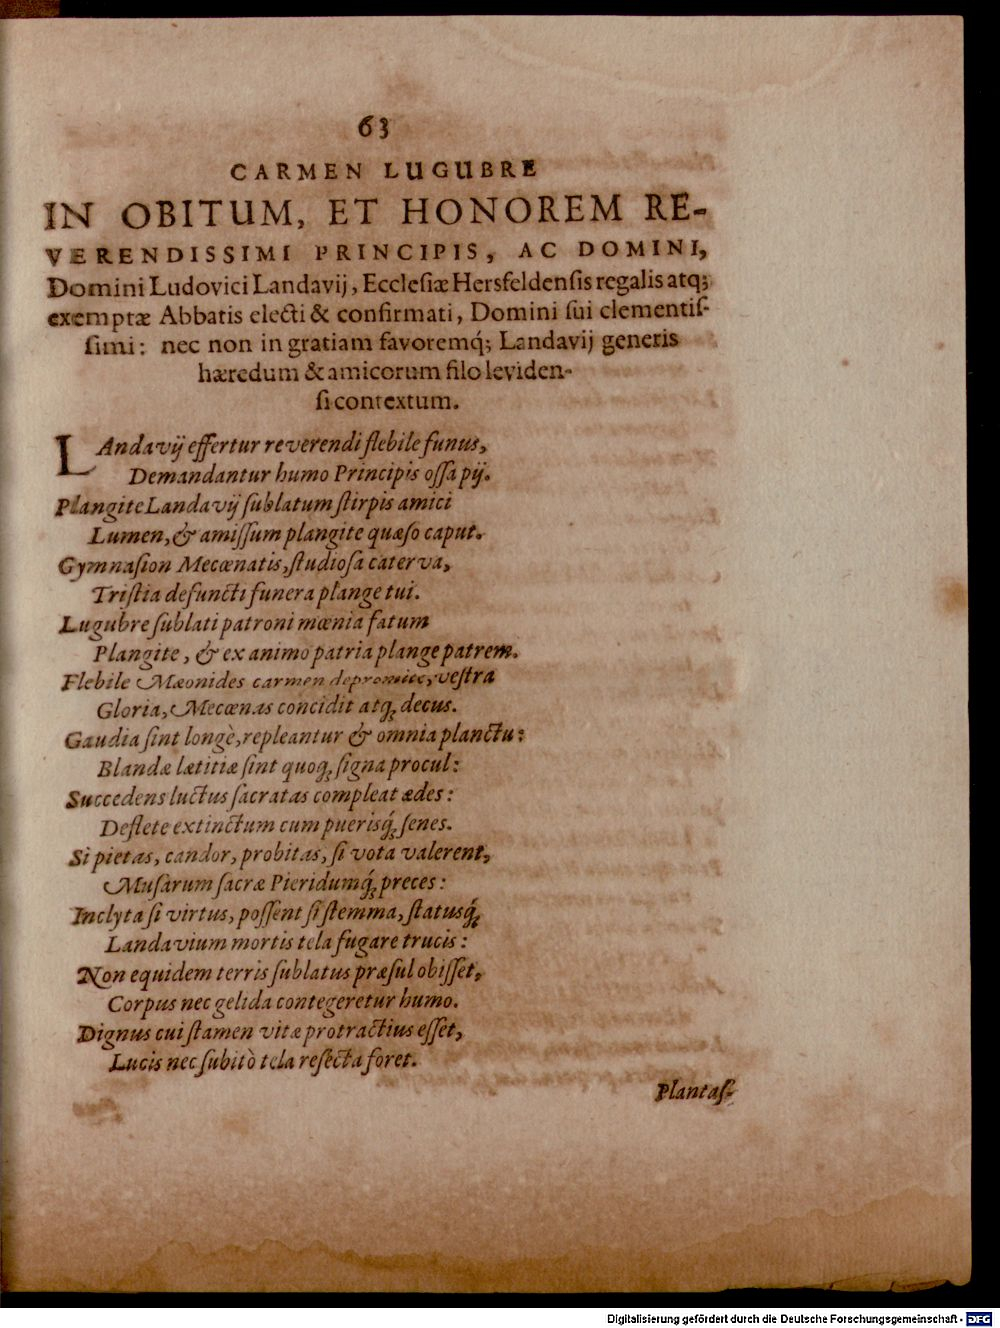 63
CARMEN LUGUBRE
IN OBITUM, ET HONOREM RE-
VERENDISSIMI PRINCIPIS, AC DOMINI,
Domini Ludovici Landavij, Eccleſiæ Hersfeldenſis regalis atq;
exemptæ Abbatis electi & confirmati, Domini ſui clementiſ-
ſimi: nec non in gratiam favoremq́; Landavij generis
hæredum & amicorum filo leviden-
ſi contextum.
LAndavij effertur reverendi flebile funus,
Demandantur humo Principis oſſa pij.
Plangite Landavij ſublatum ſtirpis amici
Lumen, & amiſſum plangite quæſo caput.
Gymnaſion Mecœnatis, ſtudioſa caterva,
Triſtia defuncti funera plange tui.
Lugubre ſublati patroni mœnia fatum
Plangite, & ex animo patria plange patrem.
Flebile Mæonides carmen depromite, veſtra
Gloria, Mecœnas concidit atq; decus.
Gaudia ſint longè, repleantur & omnia planctu:
Blandæ lætitiæ ſint quoq; ſigna procul:
Succedens luctus ſacratas compleat ædes:
Deflete extinctum cum puerisq́; ſenes.
Si pietas, candor, probitas, ſi vota valerent,
Muſarum ſacræ Pieridumq́; preces:
Inclyta ſi virtus, poſſent ſi ſtemma, ſtatusq́;
Landavium mortis tela fugare trucis:
Non equidem terris ſublatus præſul obiſſet,
Corpus nec gelida contegeretur humo.
Dignus cui ſtamen vitæ protractius eſſet,
Lucis nec ſubitò tela reſecta foret.
Plantaſ-
Digitalisierung gefördert durch die Deutsche Forschungsgemeinschaft - DFG